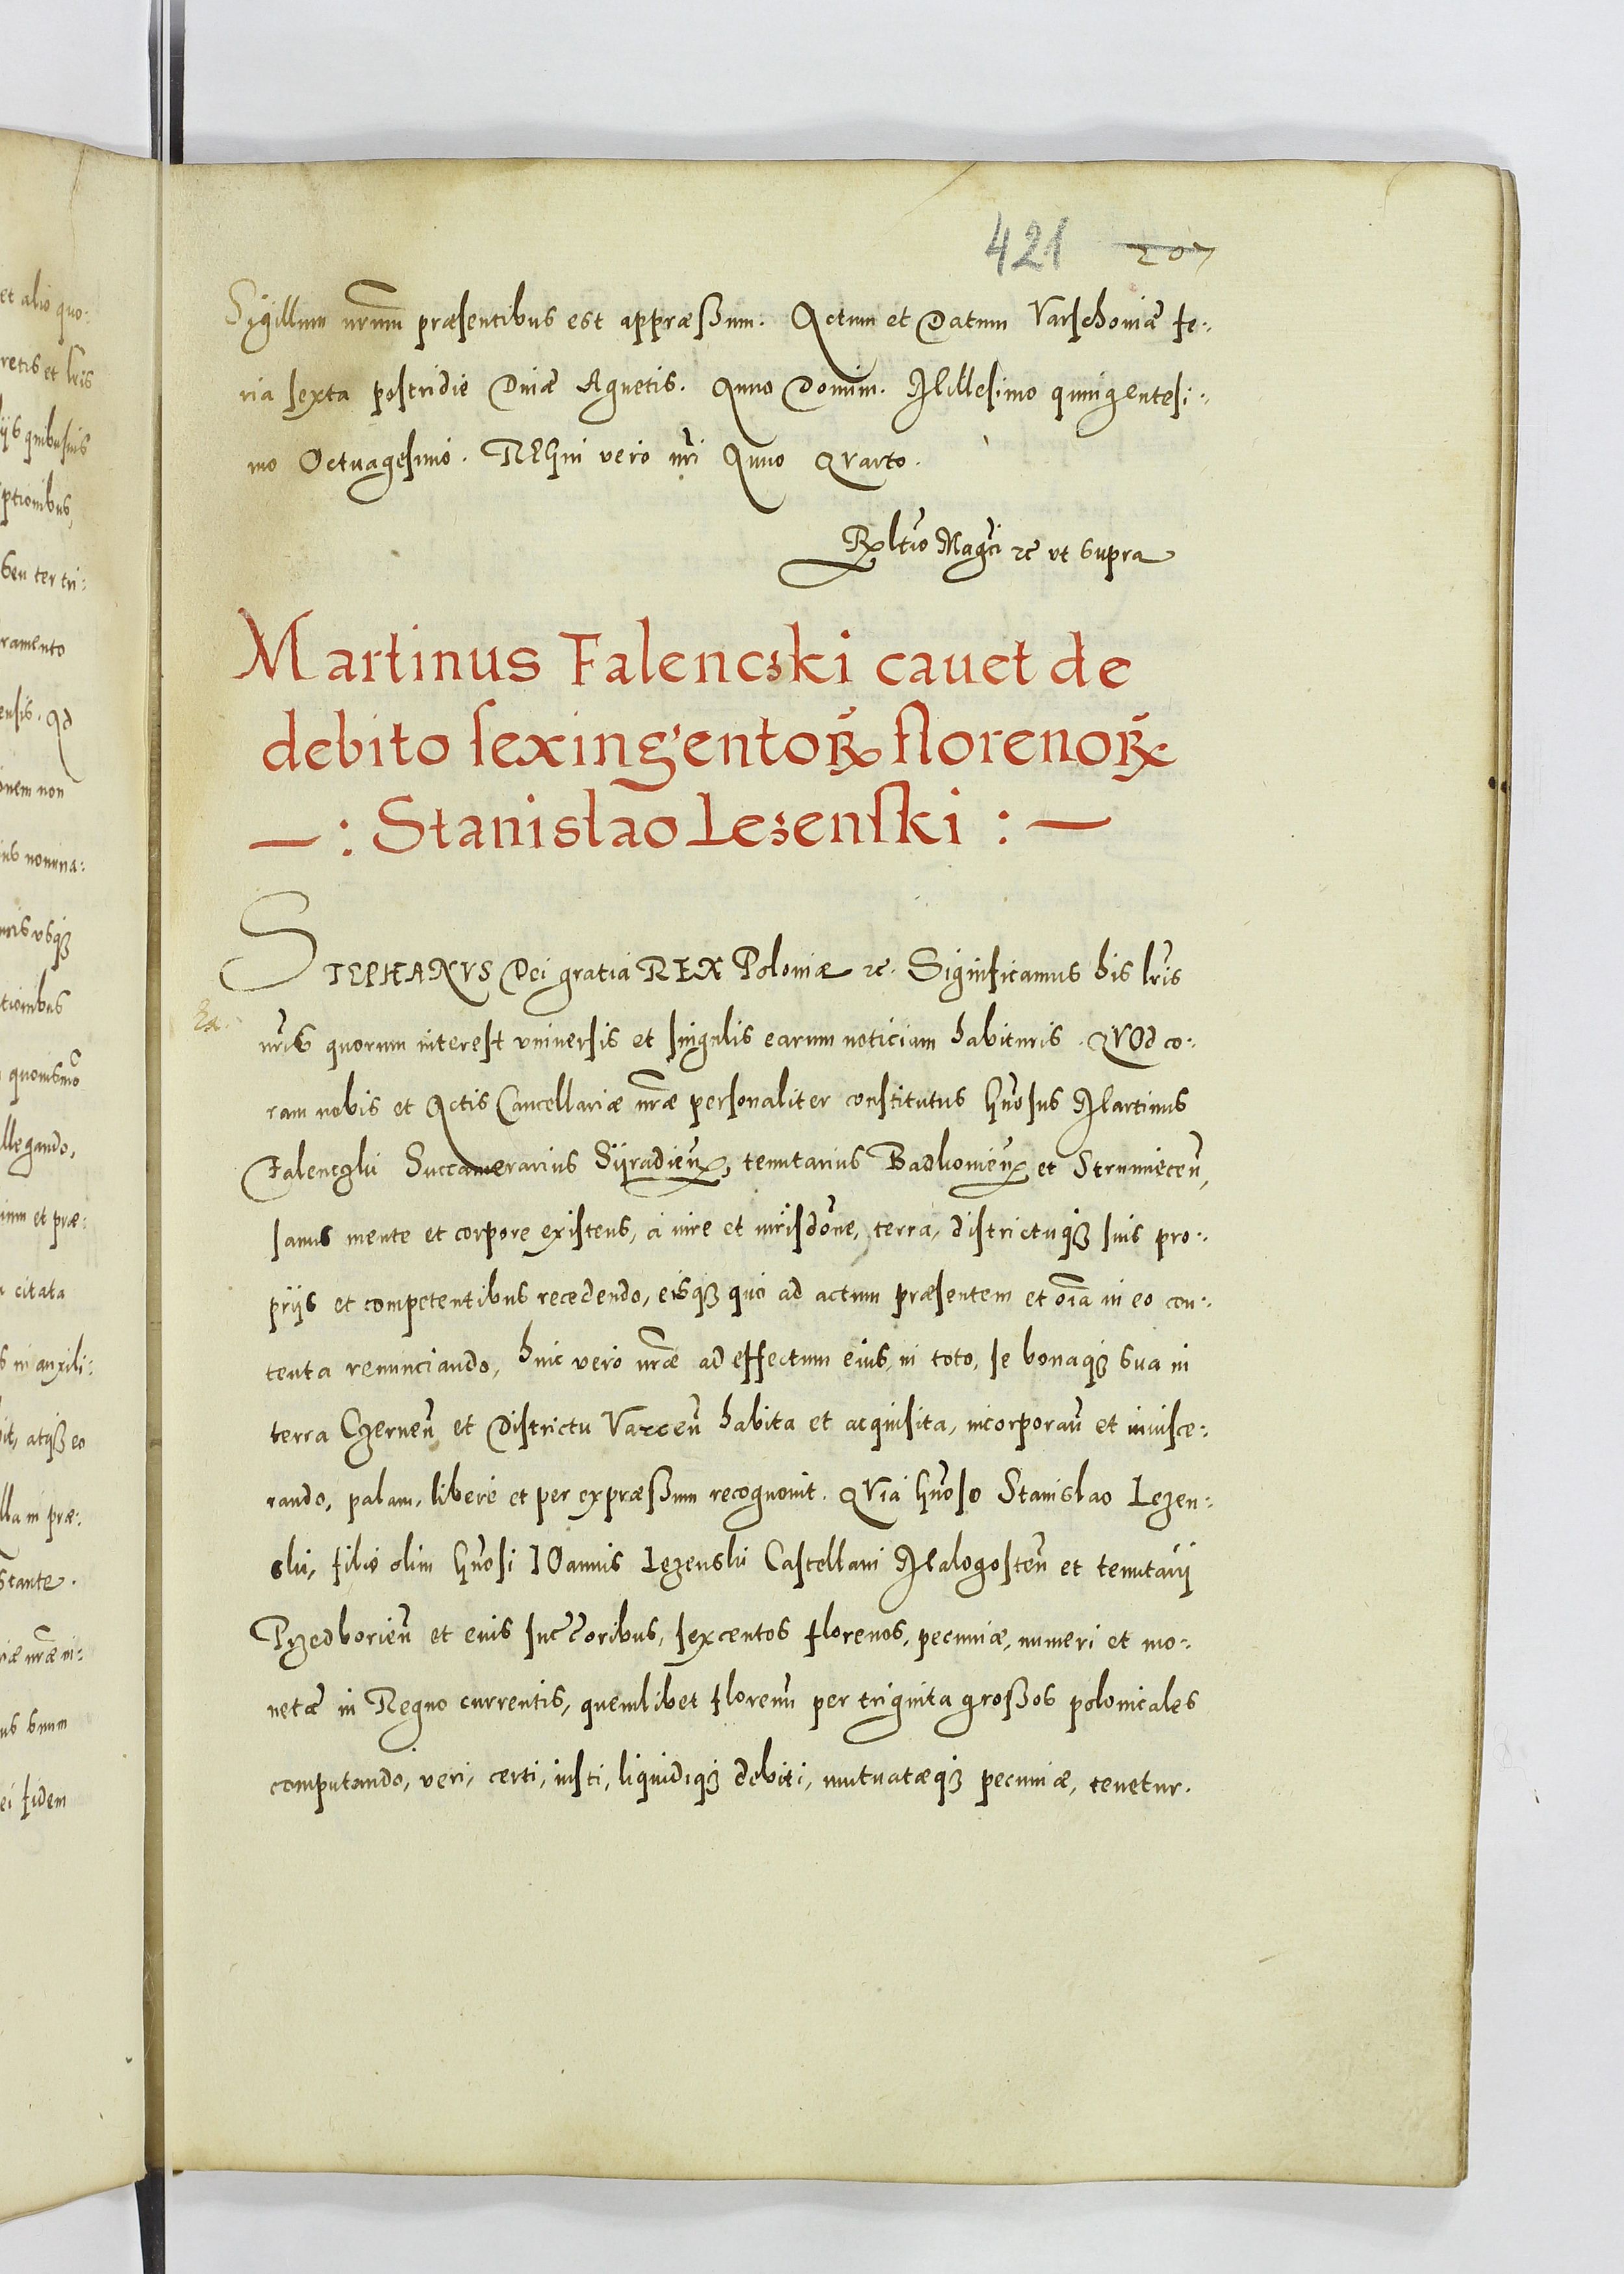 421 207
Sigillum nrum præsentibus est appræßum. Actum et Datum Varschoviæ fe:
ria sexta postridie Diuæ Agnetis. Anno Domini. Millesimo quingentesi:
mo Octuagesimo. REGni vero nri Anno Qvarto.
Rltio Magci etc ut supra
Martinus Falencski cauet de
debito sexingentorum florenorum
— : Stanislao Lezenski : —
STEPHANVS Dei gratia REX Poloniæ etc. Significamus his lris
nris quorum interest vniuersis et singulis earum noticiam habituris. QVOd co:
ram nobis et Actis Cancellariæ nræ personaliter constitutus Gnosus Martinus
Falenczki Succamerarius Syradien, tenutarius Badkouien et Strumiecen,
sanus mente et corpore existens, à iure et iurisdone, terra, districtuq3 suis pro:
prijs et competentibus recedendo, eisq3 quo ad actum præsentem et oia in eo con:
tenta renunciando, huic vero nræ ad effectum eius, in toto, se bonaq3 sua in
terra Czernen et Districtu Varcen habita et acquisita, incorporan et inuisce:
rando, palam, libere et per expræßum recognouit. QVia Gnoso Stanislao Lezen:
ski, filio olim Gnosi IOannis Lezenski Castellani Malogosten et tenutarij
Przedborien et eius succoribus, sexcentos florenos, pecuniæ, numeri et mo:
netæ in Regno currentis, quemlibet florenu per triginta großos polonicales
computando, veri, certi, iusti, liquidiq3 debiti, mutuatæq3 pecuniæ, tenetur.
et alio quo:
retis et lris
ijs quibusuis
ptionibus,
seu ter tri:
ramento
ensis. Qd
onem non
ius nomina:
uris vsq3
tionibus
quouismo
llegando,
inm et præ:
citata
s in auxili:
bit, atq3 eo
lla in præ:
stante.
riæ nræ in:
us suum
ei fidem